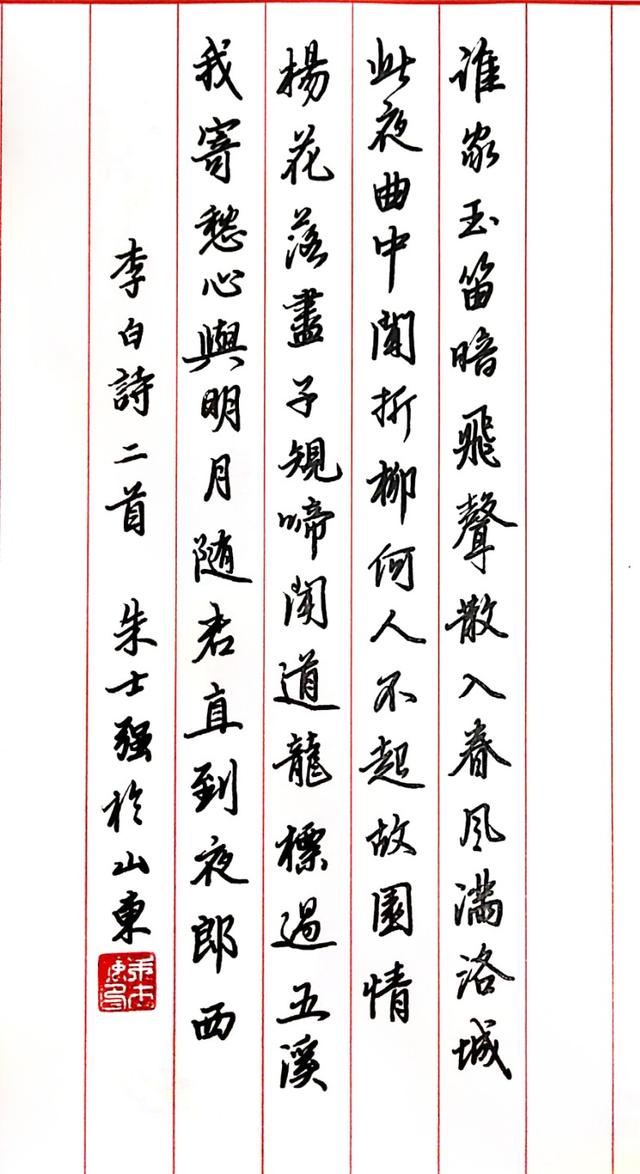 谁家玉笛暗飛聲散入春风满洛城
此夜曲中聞折柳何人不起故園情
楊花落盡子規啼聞道龍標過五溪
我寄愁心與明月随君直到夜郎西
李白詩二首 朱士强於山東